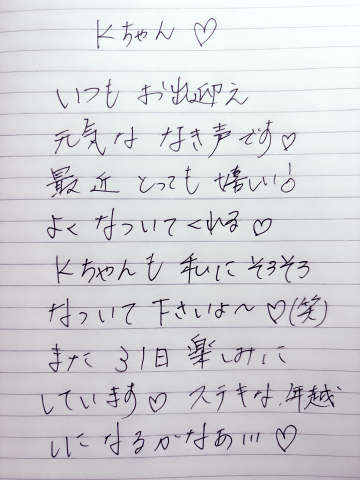 Kちゃん♡
いつも お出迎え
元気な なき声です♡
最近 とっても 嬉しい!
よく なついてくれる♡
Kちゃんも 私に そろそろ
なついて 下さいよ〜♡(笑)
また 31日 楽しみに
しています♡ ステキな 年越
しになるかなあ!!! ♡